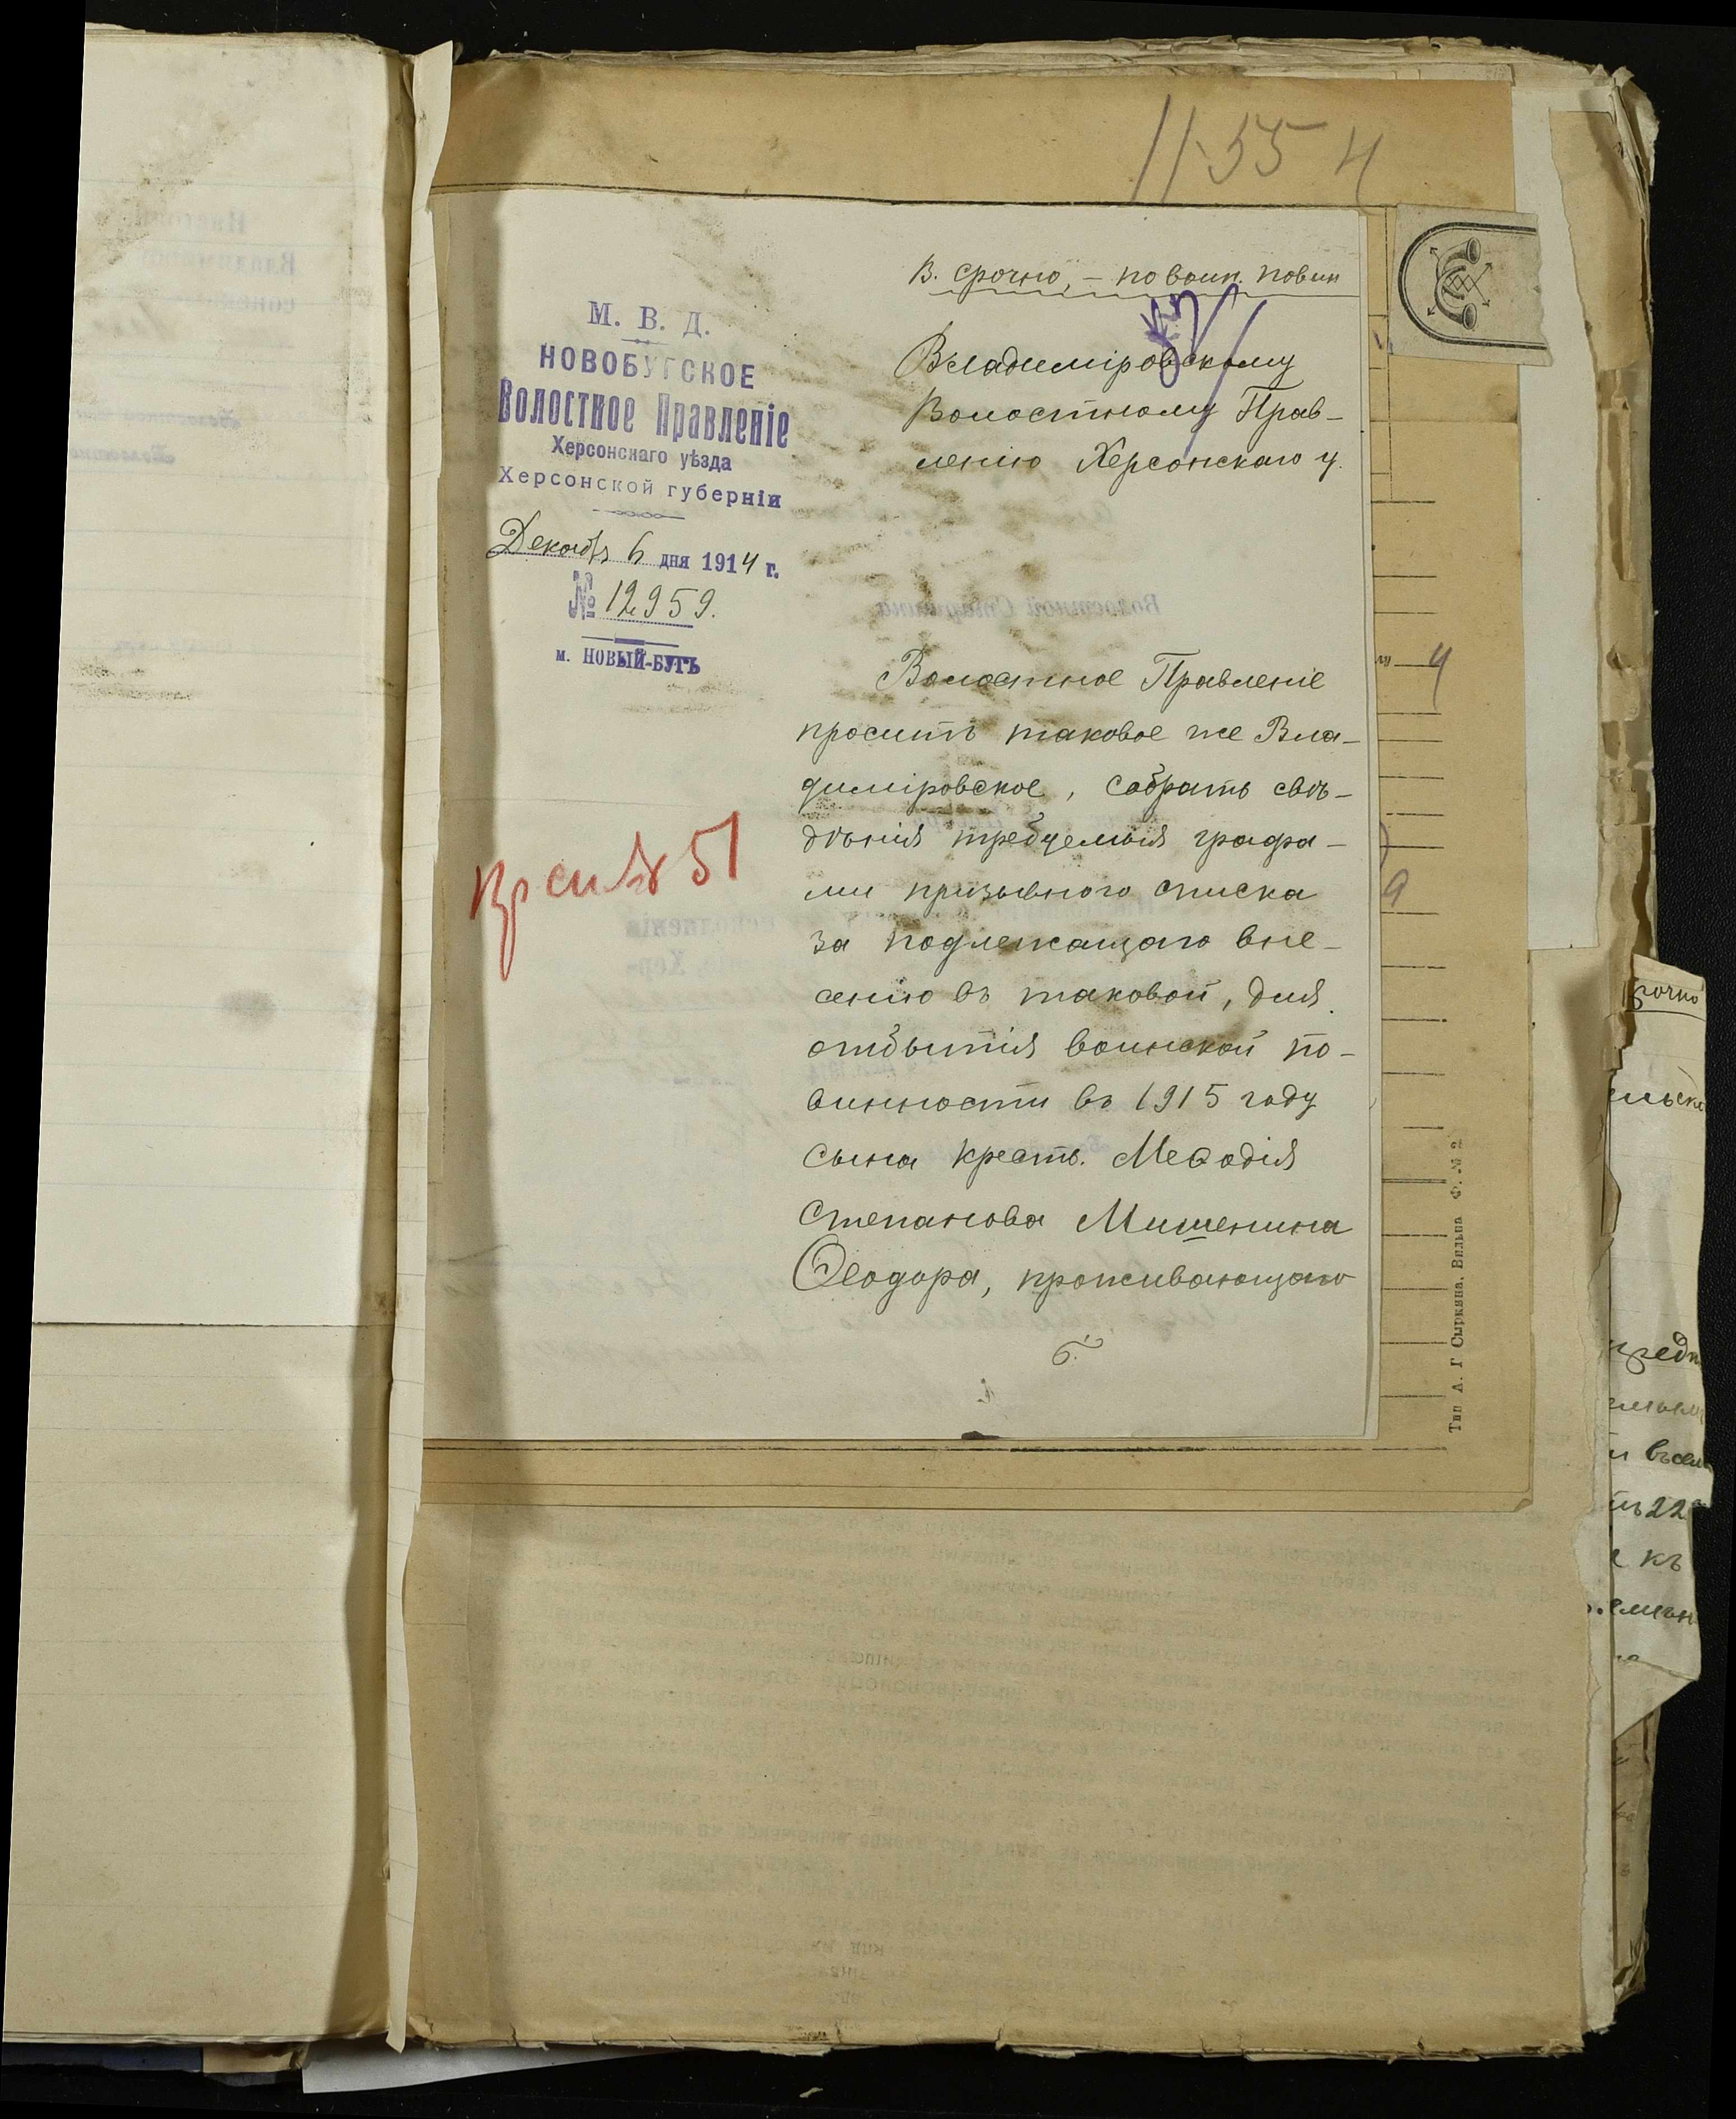 11554
В. срочно, – по воин. повин
М. В. Д.
НОВОБУГСКОЕ
Волостное Правленіе
Херсонскаго уѣзда
Херсонской губерніи
Декабр 6 дня 1914 г.
№ 12959.
м. НОВЫЙ-БУГЪ
Владиміровскому
Волостному Прав–
ленію Херсонскаго у.
Волостное Правленіе
проситъ таковое же Вла–
диміровское, собрать свѣ–
дѣнія требуемыя графа–
ми призывного списка
за подлежащаго вне–
сенію въ таковой, для
отбытія воинской по–
винности въ 1915 году
сына крест. Меѳодія
Степанова Мишенина
Ѳеодора, проживающаго
51
4
9
Тип А. Г Сыркина. Вильна Ф. № 2
рочно
къ